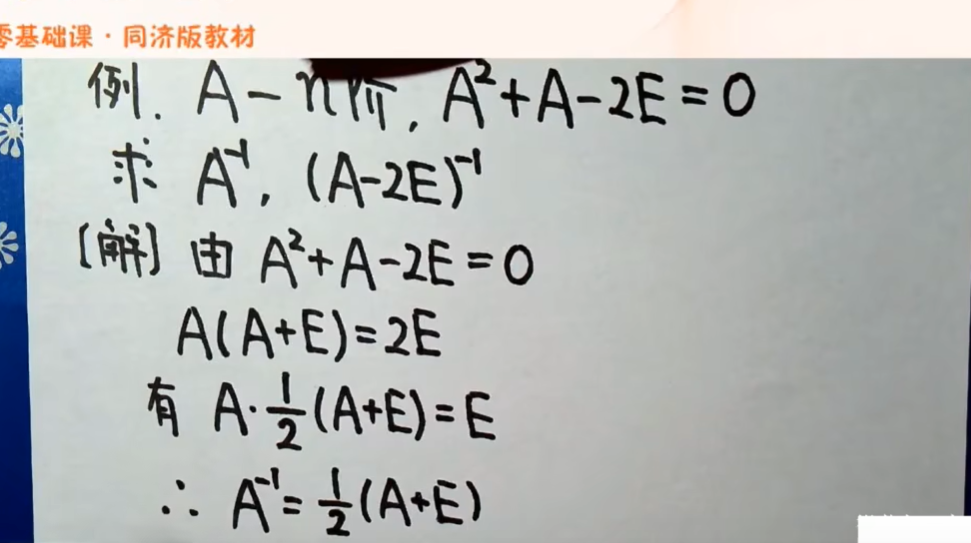 零基础课·同济版教材
例. A-n阶, A²+A-2E=0
求 A⁻¹, (A-2E)⁻¹
[解] 由 A²+A-2E=0
A(A+E)=2E
有 A·1/2(A+E)=E
∴ A⁻¹=1/2(A+E)